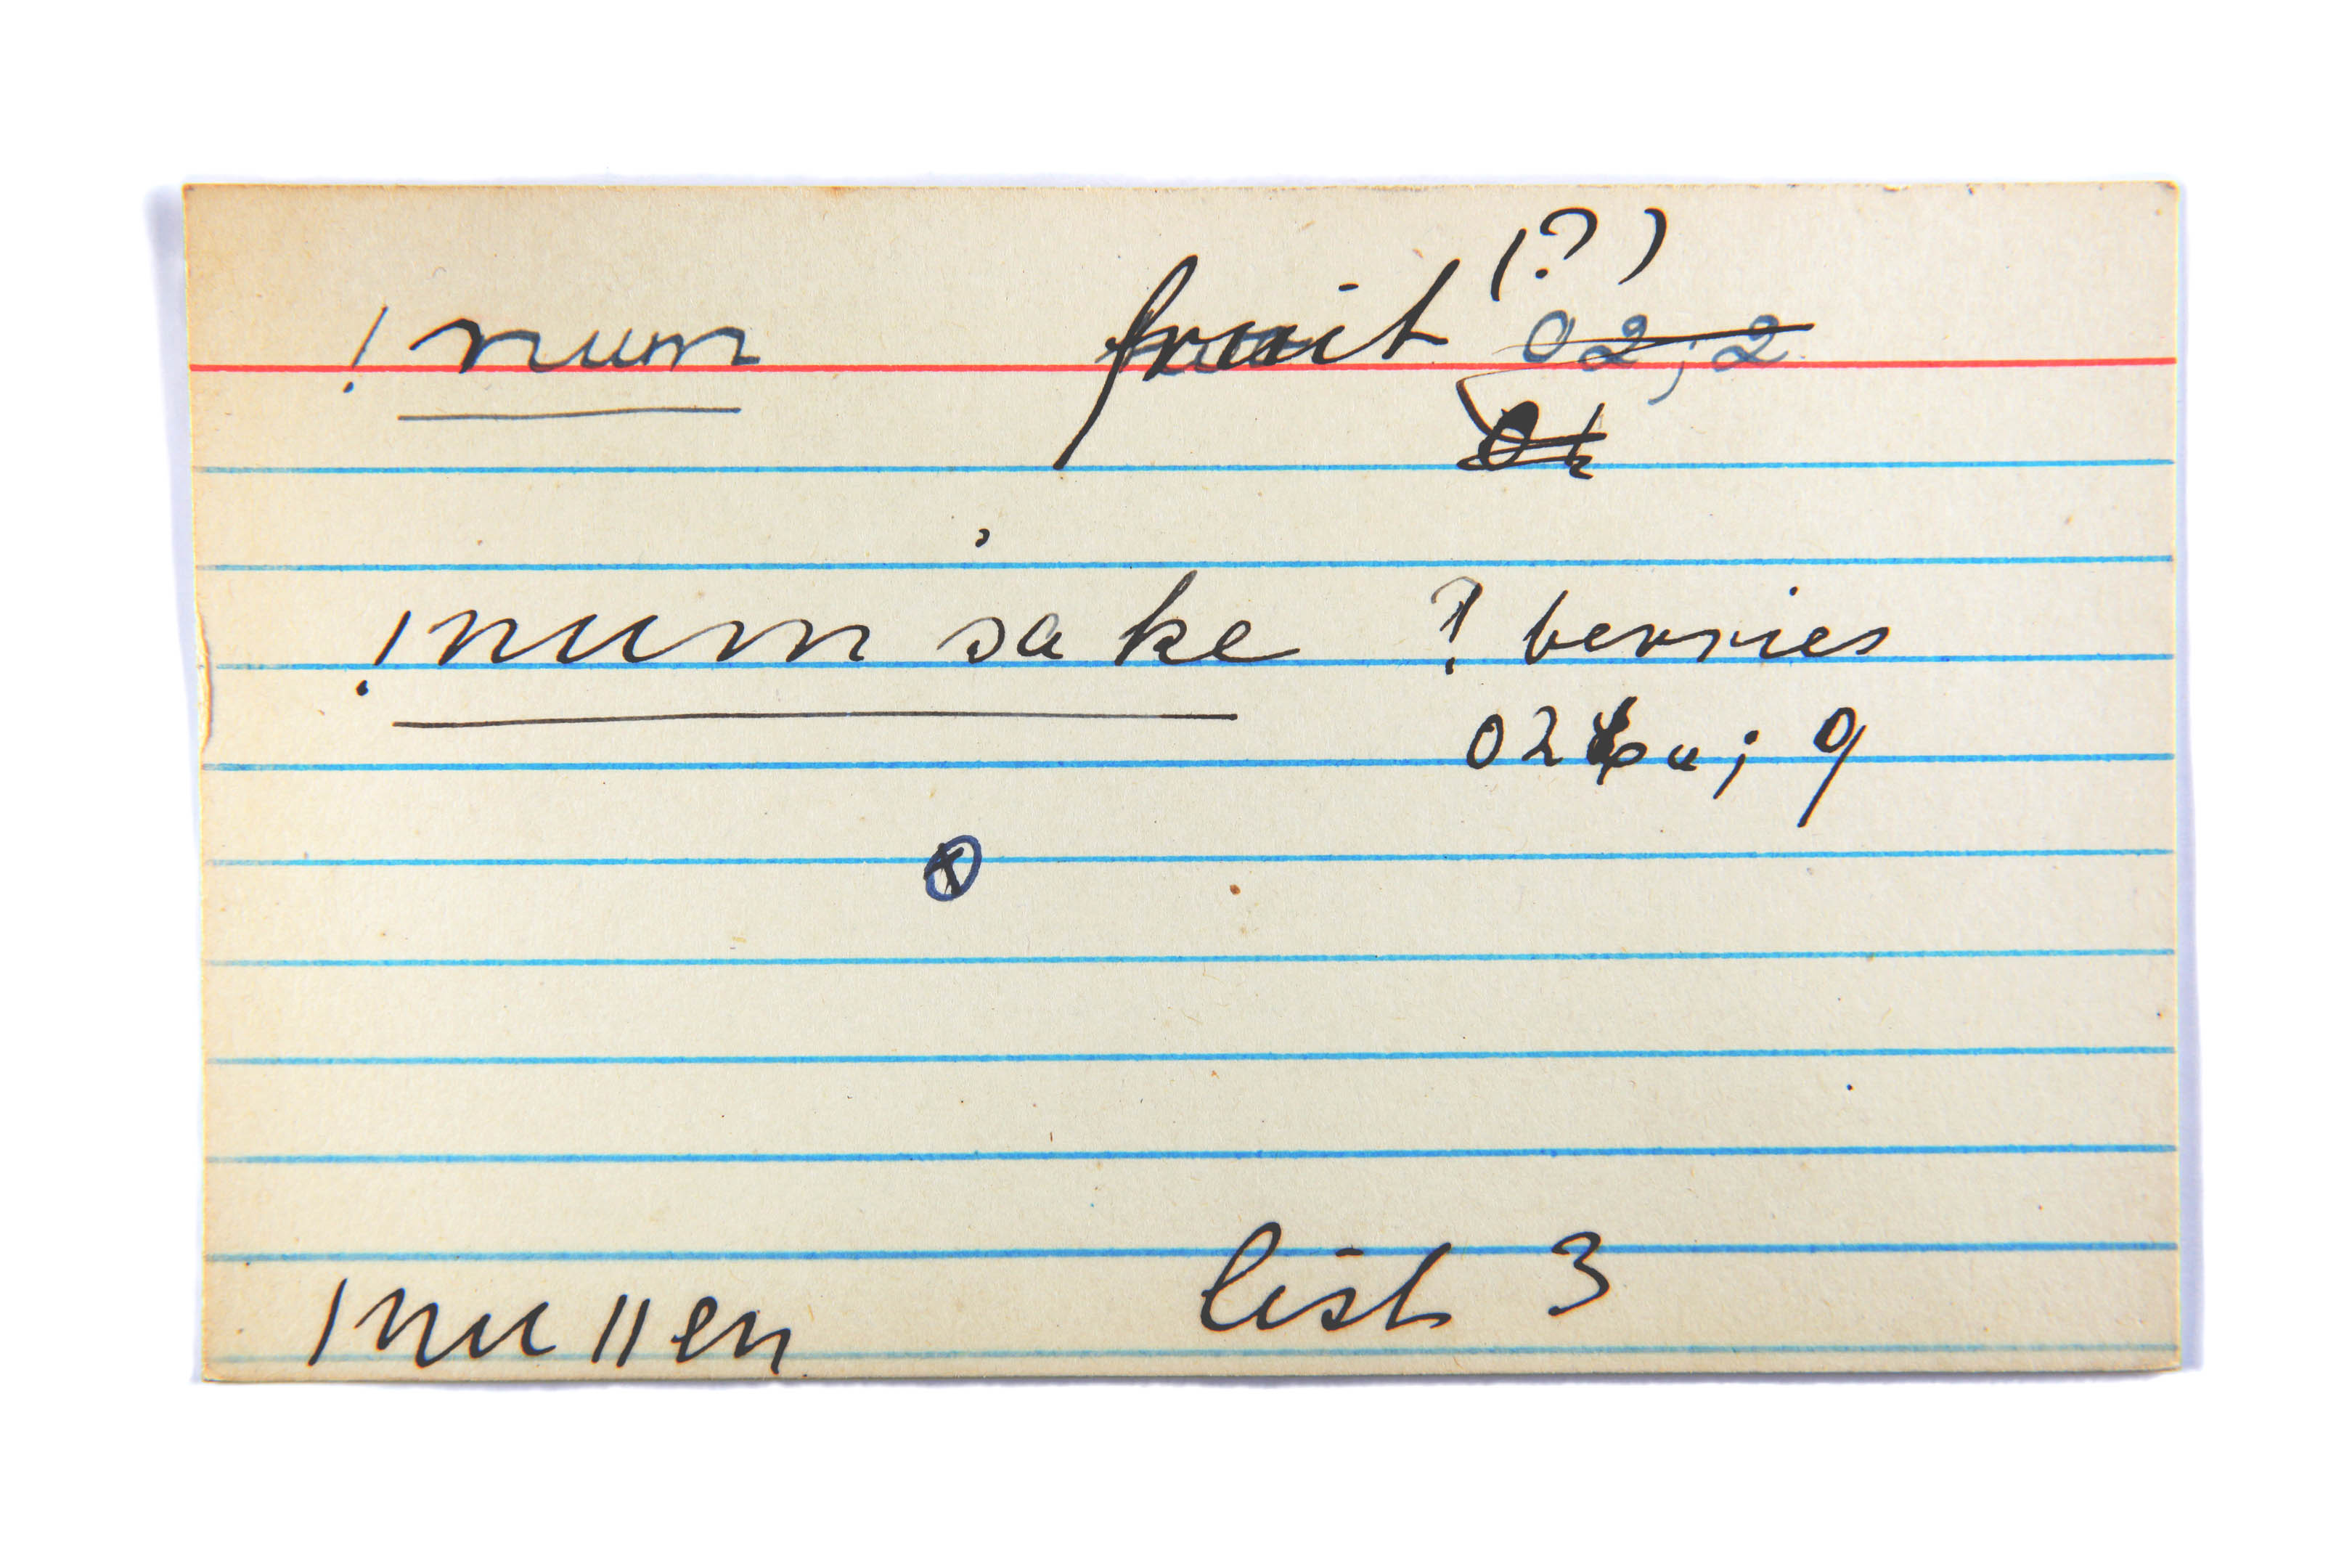 !num fruit (?) 02,2
!num sa ke ? berries
02 ; 9
|nu||en list 3